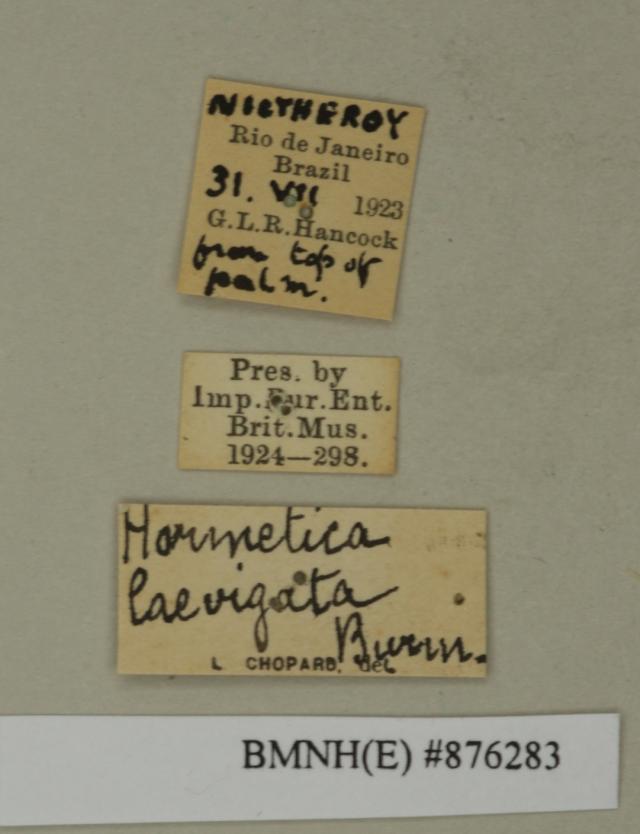 NICTHEROY
Rio de Janeiro
Brazil
31. VII 1923
G.L.R.Hancock
from top of
palm.
Pres. by
Imp.Bur.Ent.
Brit.Mus.
1924—298.
Hormetica
laevigata
Burm.
L CHOPARD, del
BMNH(E) #876283